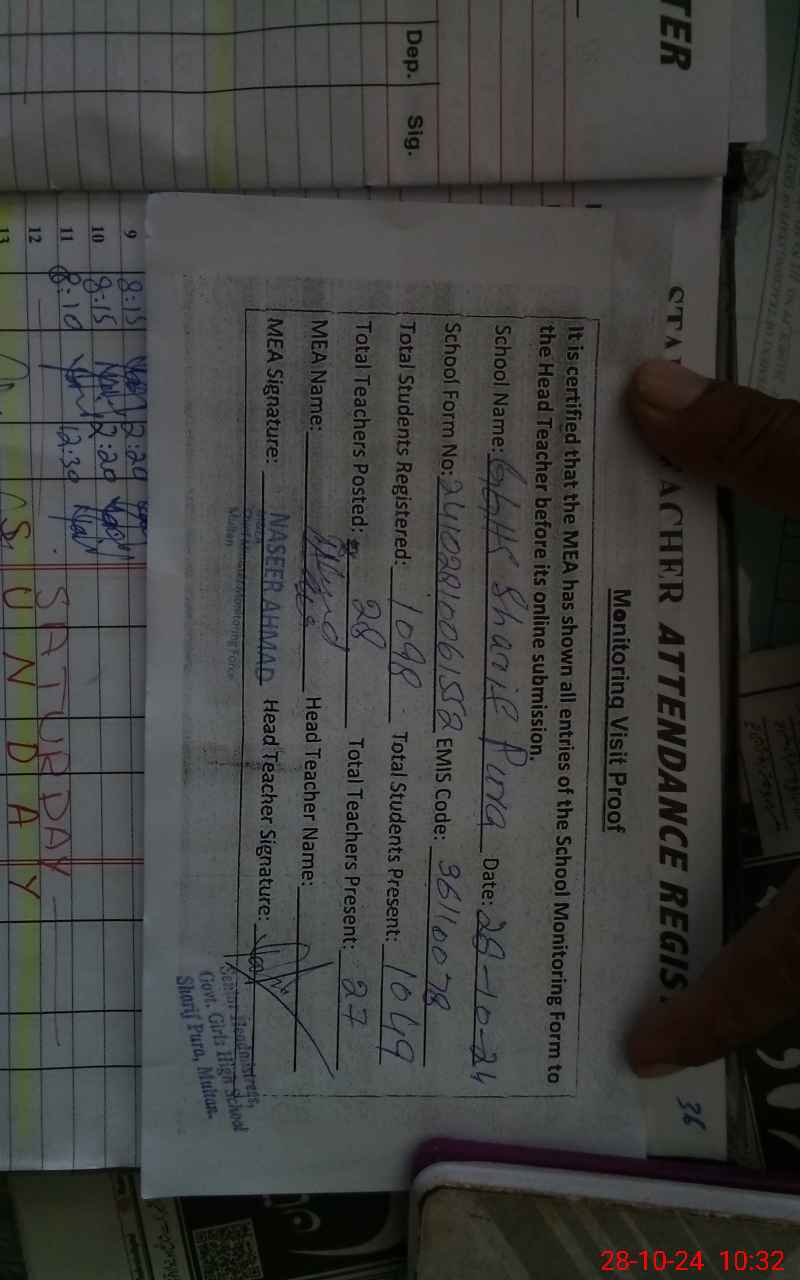 TER
Dep. Sig.
TEACHER ATTENDANCE REGIS
36
Monitoring Visit Proof
It is certified that the MEA has shown all entries of the School Monitoring Form to
the Head Teacher before its online submission.
School Name: GGHS Sharif Pura Date: 28-10-24
School Form No: EMIS Code: 36110078
Total Students Registered: 1098 Total Students Present: 1049
Total Teachers Posted: 28 Total Teachers Present: 27
MEA Name: Head Teacher Name:
MEA Signature: NASEER AHMAD Head Teacher Signature:
Monitoring Force
Multan
Senior Headmistress,
Govt. Girls High School
Sharif Pura, Multan.
9 8:15 12:20
10 8:15 12:20
11 8:10 12:30
12 SATURDAY
13 SUNDAY
28-10-24 10:32